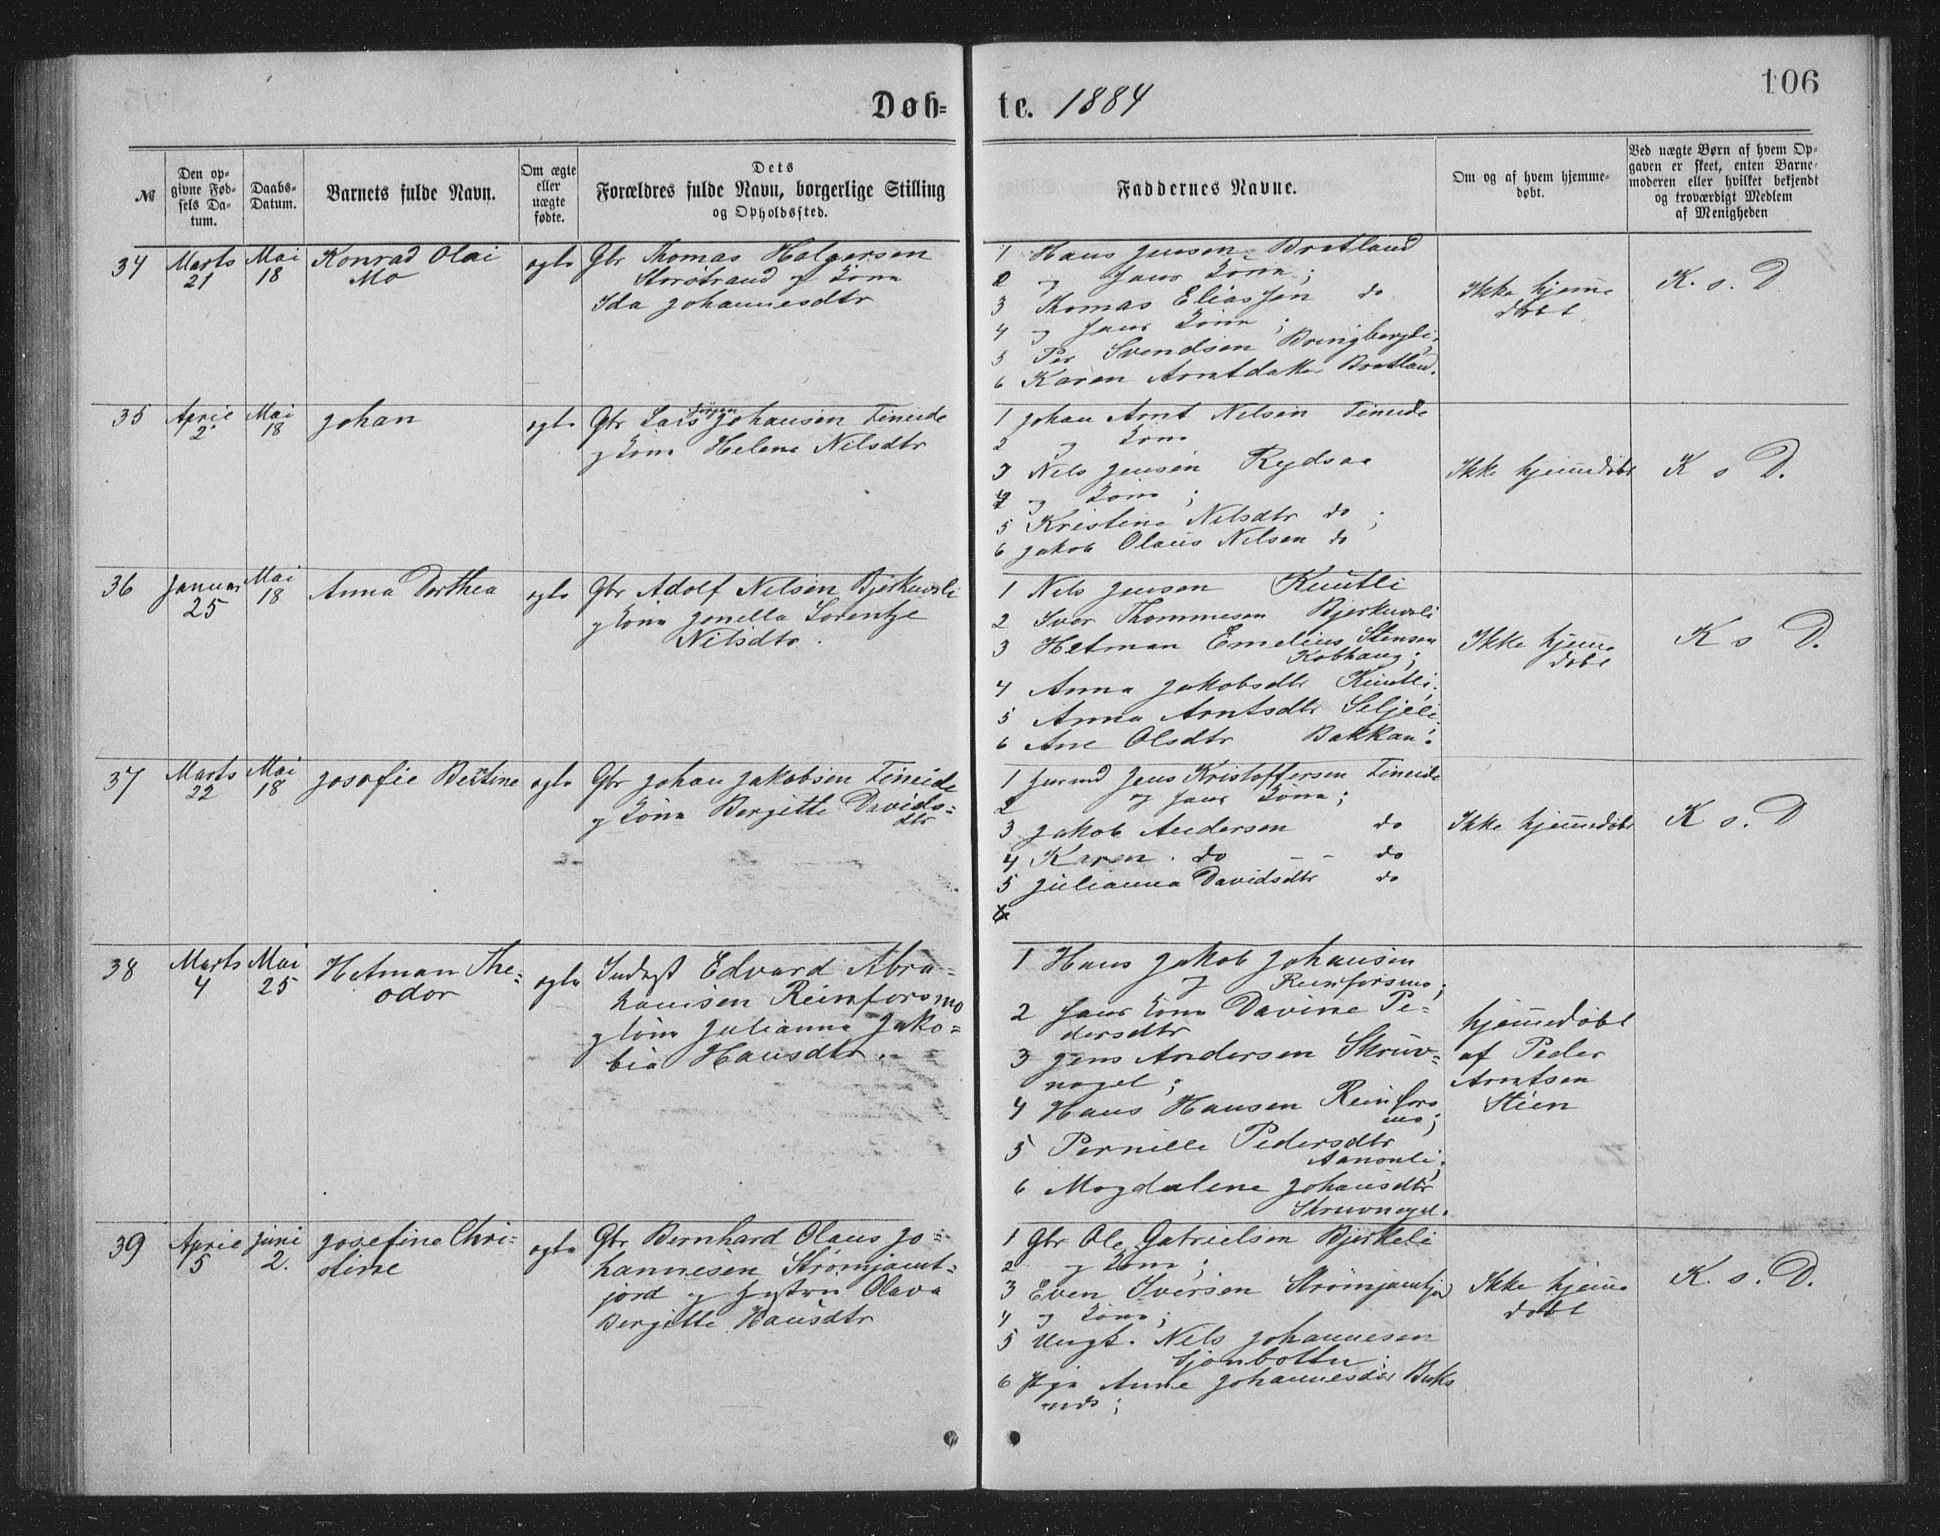 106
Døb- te. 1884
№
Den op-
givne Fød-
sels Da-
tum.
Daabs-
Datum.
Barnets fulde Navn.
Om ægte
eller
uægte
fødte.
Dets
Forældres fulde Navn, borgerlige Stilling
og Opholdssted.
Faddernes Navne.
Om og af hvem hjemme-
døbt.
Ved uægte Børn af hvem Op-
gaven er skeet, enten Barne-
moderen eller hvilket bekjendt
og troværdigt Medlem
af Menigheden
34
Marts
21
Mai
18
Konrad Olai
Mo
ægte
Gbr Thomas Holgersen
Storstrand og Kone
Ida Johannesdtr
1 Hans Jensen Bratland
2 og hans Kone ;
3 Thomas Eliassen do
4 og hans Kone ;
5 Per Svendsen Bringbergli;
6 Karen Arntdatter Bratland.
Ikke hjemme
døbt
K. s. D
35
April
2
Mai
18
Johan
ægte
Gbr Lars Jørgen Johansen Fineide
og Kone Helene Nilsdtr
1 Johan Arnt Nilsen Fineide
2 og Kone
3 Nils Jensen Rydsaa
4 og Kone ;
5 Kristine Nilsdtr do ;
6 Jakob Olaus Nilsen do
Ikke hjemmedøbt
K s D.
36
Januar
25
Mai
18
Anna Dorthea
ægte
Gbr Adolf Nilsen Bjerkmoli
og Kone Jonella Lorentze
Nilsdtr.
1 Nils Jensen Kuntli
2 Iver Thommesen Bjerkmoli
3 Hetman Emelius Stensen
Kobhaug;
4 Anna Jakobsdtr Kuntli;
5 Anna Arntsdtr Seljeli;
6 Ane Olsdtr Bakkan.
Ikke hjemme
døbt
K s D.
37
Marts
22
Mai
18
Josefie Bertine
ægte
Gbr Johan Jakobsen Fineide
og Kone Bergitte Davids-
dtr
1 Jens Kristoffersen Fineide
2 og hans Kone ;
3 Jakob Andersen do
4 Karen do - - do
5 Julianna Davidsdtr do
6
Ikke hjemmedøbt
K s. D
38
Marts
4
Mai
25
Hetman The-
odor
ægte
Indgst Edvard Abra-
hamsen Reinforsmo
og Kone Julianna Jako-
bia Hansdtr.
1 Hans Jakob Johansen
og Reinforsmo;
2 hans Kone Davine Pe-
dersdtr
3 Jens Andersen Skruv-
nagel ;
4 Hans Hansen Reinfors
mo;
5 Pernille Pedersdtr
Aanonli;
6 Magdalene Johansdtr
Skruvnagel.
hjemmedøbt
af Peder
Arntsen
Stien
39
April
5
Juni
2.
Josefine Chri-
stine
ægte
Gbr Bernhard Olaus Jo-
hannesen Strømjamt-
jord og Hystru Olava
Bergitte Hansdtr
1 Gbr Ole Gabrielsen Bjerkeli
2 og Kone ;
3 Even Iversen Strømjamtjor
4 og Kone ;
5 Ungk. Nils Johannesen
Sjonbotten ;
6 Pige Anne Johannesdtr
Ikke hjemme
døbt
K. s. D.